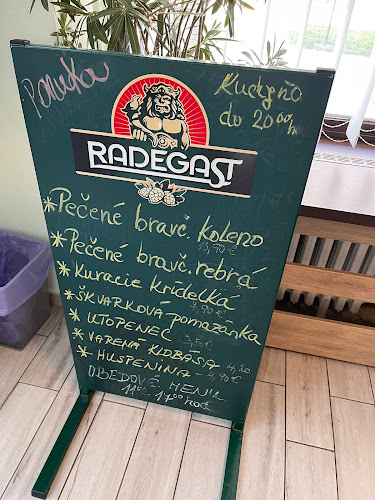 Ponuka
Kuchyňa
do 20 00 h
RADEGAST
* Pečené bravč. koleno
13,90 €
* Pečené bravč. rebrá
* Kuracie krídelká
* ŠKVARKOVÁ pomazánka
* UTOPENEC
* VARENÁ KLOBÁSA 4,20
* HUSPENINA 4,90 €
OBEDOVÉ MENU
11 00 - 17 00 hod